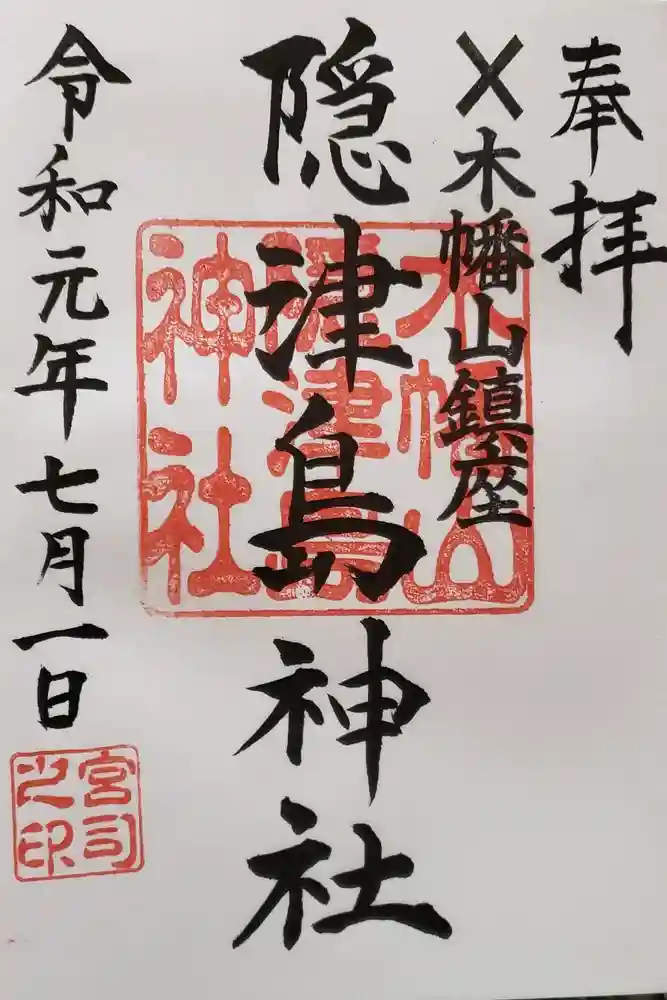 奉拝
〆木幡山鎮座
隠津島神社
令和元年七月一日
木幡山
隠津島
神社
宮司
之印